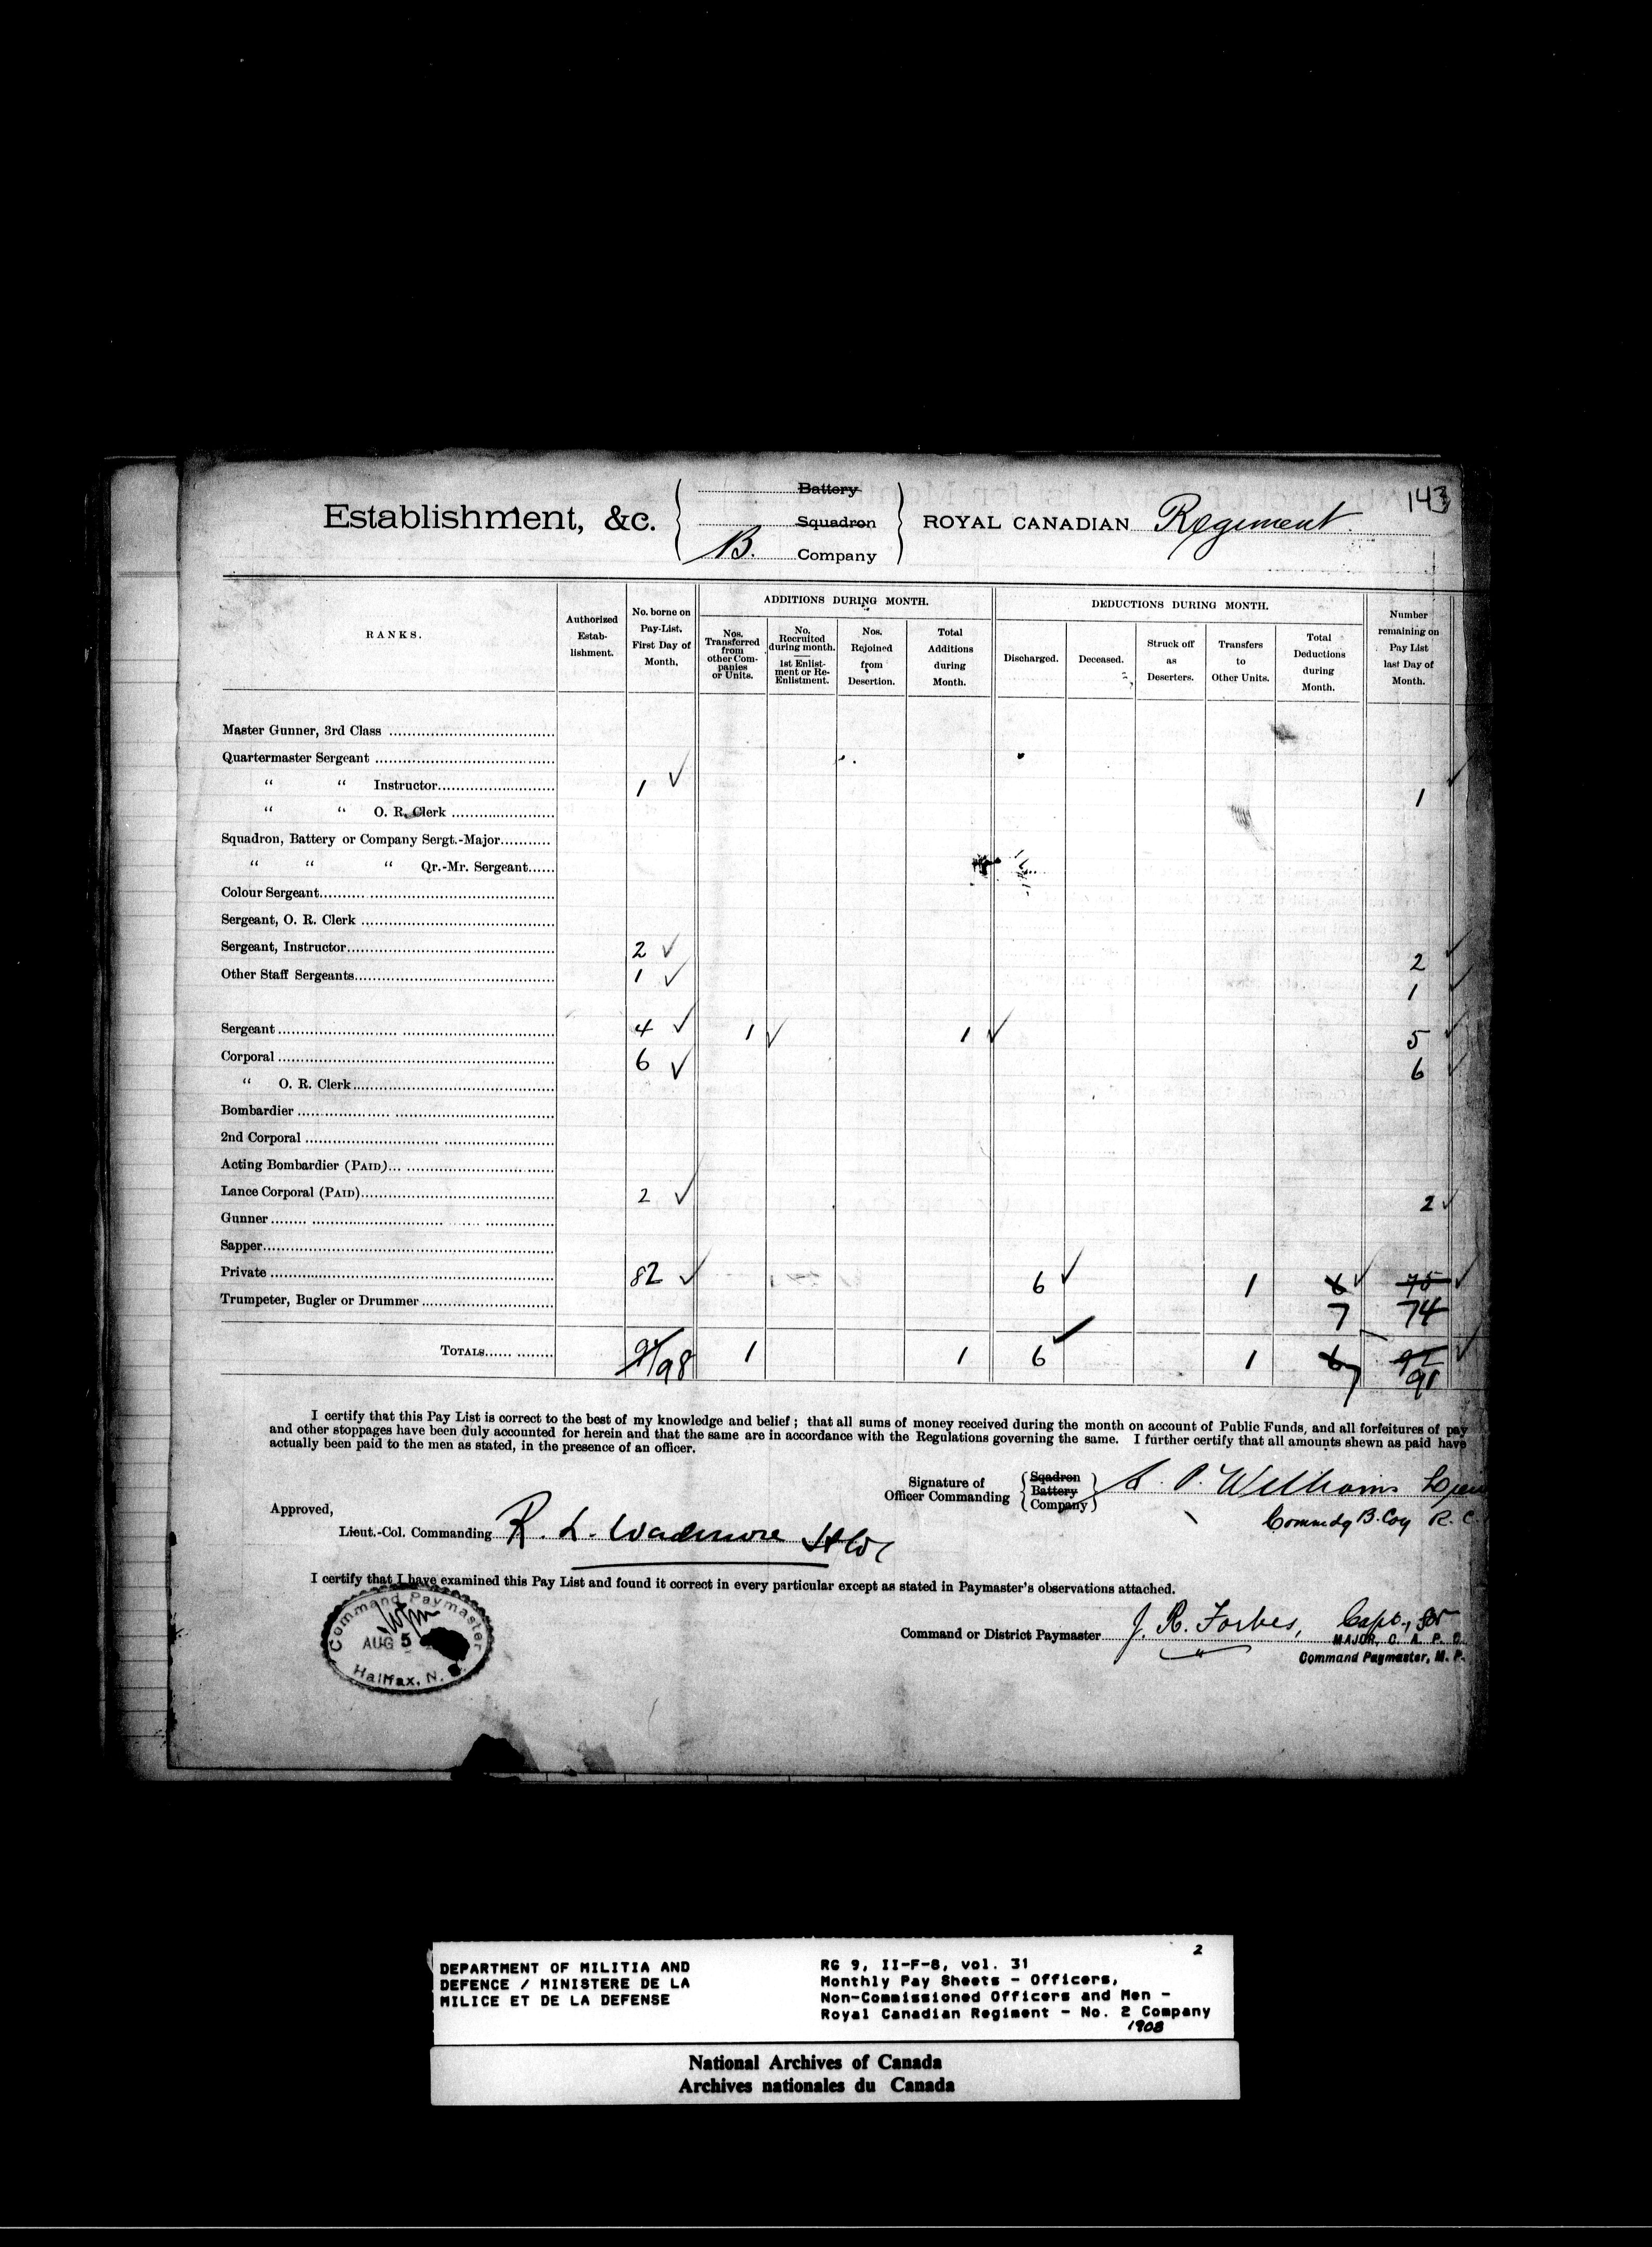 143
Battery
Establishment, &c. Squadron ROYAL CANADIAN Regiment
B. Company
RANKS.
Authorized Estab-lishment.
No. borne on Pay-List, First Day of Month.
ADDITIONS DURING MONTH.
Nos. Transferred from other Com-panies or Units.
No. Recruited during month. 1st Enlist-ment or Re-Enlistment.
Nos. Rejoined from Desertion.
Total Additions during Month.
DEDUCTIONS DURING MONTH.
Discharged.
Deceased.
Struck off as Deserters.
Transfers to Other Units.
Total Deductions during Month.
Number remaining on Pay List last Day of Month.
Master Gunner, 3rd Class
Quartermaster Sergeant
“ “ Instructor 1 ✓ 1 ✓
“ “ O. R. Clerk
Squadron, Battery or Company Sergt.-Major
“ “ “ Qr.-Mr. Sergeant
Colour Sergeant
Sergeant, O. R. Clerk
Sergeant, Instructor 2 ✓ 2 ✓
Other Staff Sergeants 1 ✓ 1 ✓
Sergeant 4 ✓ 1 ✓ 1 ✓ 5 ✓
Corporal 6 ✓ 6 ✓
“ O. R. Clerk
Bombardier
2nd Corporal
Acting Bombardier (PAID)
Lance Corporal (PAID) 2 ✓ 2 ✓
Gunner
Sapper
Private 82 ✓ 6 ✓ 1 6 ✓ 75 ✓
Trumpeter, Bugler or Drummer 7 74
TOTALS 98 1 1 6 ✓ 1 6 7 92 ✓
91
I certify that this Pay List is correct to the best of my knowledge and belief ; that all sums of money received during the month on account of Public Funds, and all forfeitures of pay
and other stoppages have been duly accounted for herein and that the same are in accordance with the Regulations governing the same. I further certify that all amounts shewn as paid have
actually been paid to the men as stated, in the presence of an officer.
Signature of Officer Commanding Sqadron Battery Company P. Williams
Commdg B. Coy R. C.
Approved,
Lieut.-Col. Commanding R. L. Wadmore
I certify that I have examined this Pay List and found it correct in every particular except as stated in Paymaster's observations attached.
Command Paymaster
AUG 5
Halifax, N.
Command or District Paymaster J. R. Forbes, Capt., for
MAJOR, C. A. P. C.
Command Paymaster, M. P.
2
DEPARTMENT OF MILITIA AND
DEFENCE / MINISTERE DE LA
MILICE ET DE LA DEFENSE
RG 9, II-F-8, vol. 31
Monthly Pay Sheets - Officers,
Non-Commissioned Officers and Men -
Royal Canadian Regiment - No. 2 Company
1908
National Archives of Canada
Archives nationales du Canada